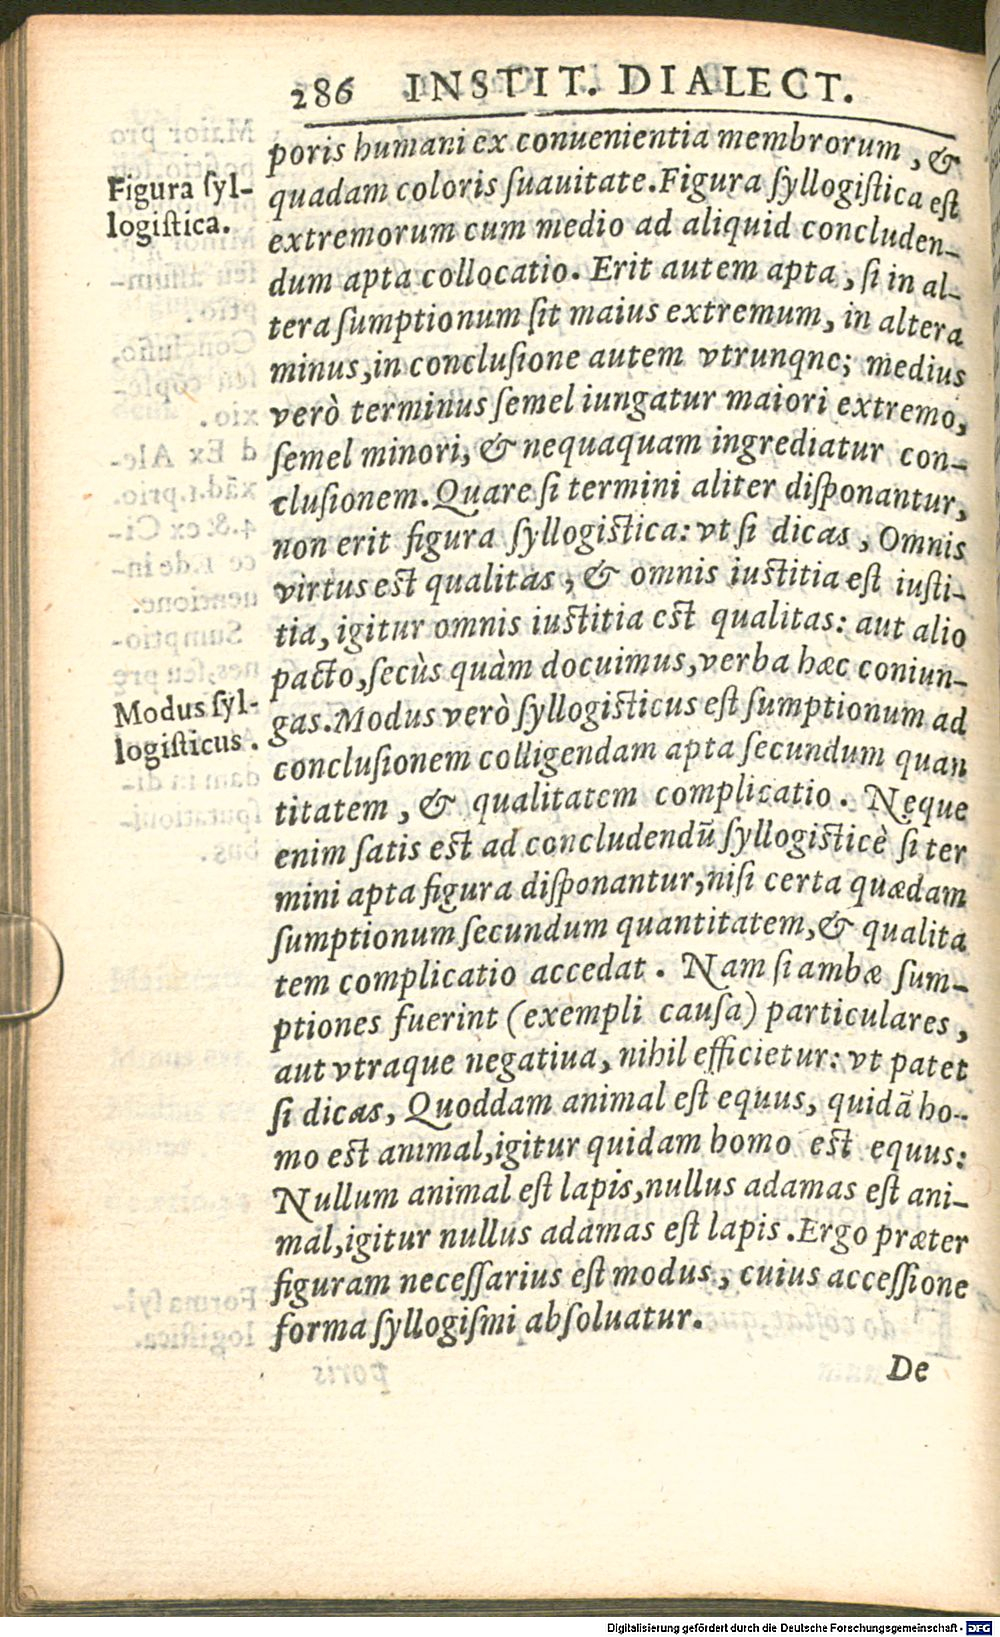 286 INSTIT. DIALECT.
poris humani ex conuenientia membrorum, &
Figura ſyl-
logiſtica.
quadam coloris ſuauitate. Figura ſyllogiſtica eſt
extremorum cum medio ad aliquid concluden-
dum apta collocatio. Erit autem apta, ſi in al-
tera ſumptionum ſit maius extremum, in altera
minus, in concluſione autem vtrunqne; medius
verò terminus ſemel iungatur maiori extremo,
ſemel minori, & nequaquam ingrediatur con-
cluſionem. Quare ſi termini aliter diſponantur,
non erit figura ſyllogiſtica: vt ſi dicas, Omnis
virtus eſt qualitas, & omnis iuſtitia eſt iuſti-
tia, igitur omnis iuſtitia eſt qualitas: aut alio
pacto, ſecùs quàm docuimus, verba hæc coniun-
Modus ſyl-
logiſticus.
gas. Modus verò ſyllogiſticus eſt ſumptionum ad
concluſionem colligendam apta ſecundum quan
titatem, & qualitatem complicatio. Neque
enim ſatis eſt ad concludendū ſyllogiſticè ſi ter
mini apta figura diſponantur, niſi certa quædam
ſumptionum ſecundum quantitatem, & qualita
tem complicatio accedat. Nam ſi ambæ ſum-
ptiones fuerint (exempli cauſa) particulares,
aut vtraque negatiua, nihil efficietur: vt patet
ſi dicas, Quoddam animal eſt equus, quidā ho-
mo eſt animal, igitur quidam homo eſt equus:
Nullum animal eſt lapis, nullus adamas eſt ani-
mal, igitur nullus adamas eſt lapis. Ergo præter
figuram neceſſarius eſt modus, cuius acceſſione
forma ſyllogiſmi abſoluatur.
De
Digitalisierung gefördert durch die Deutsche Forschungsgemeinschaft - DFG